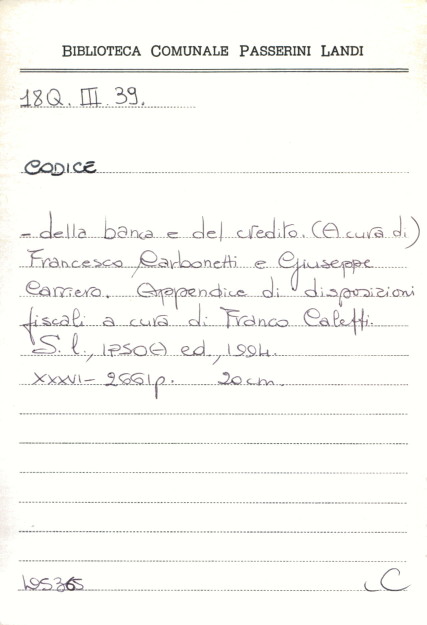 BIBLIOTECA COMUNALE PASSERINI LANDI
18Q. III. 39.
CODICE
- della banca e del credito. (A cura di)
Francesco Carbonetti e Giuseppe
Carriero. Appendice di disposizioni
fiscali a cura di Franco Caleffi.
S. l., IPSOA ed., 1994.
XXXVI- 2661p. 20 cm.
C